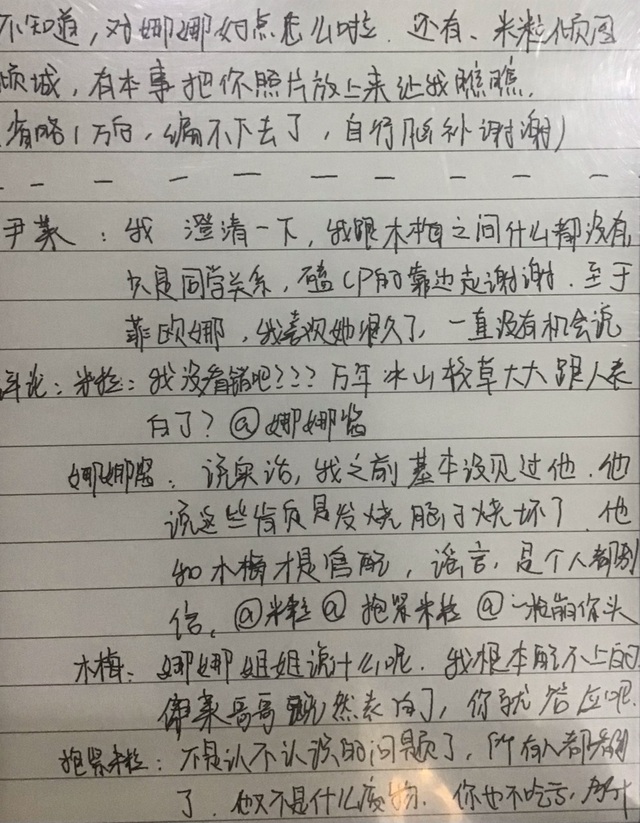 不知道，对娜娜好点怎么啦. 还有、米粒倾国
倾城，有本事把你照片放上来让我瞧瞧.
省略1万字，编不下去了，自行脑补谢谢)
— — — — — — — — — —
尹莱：我 澄清一下，我跟木梅之间什么都没有,
只是同学关系，磕CP的靠边走谢谢. 至于
菲欧娜，我喜欢她很久了，一直没有机会说
评论：米粒：我没看错吧??? 万年冰山校草大大跟人表
白了? @娜娜酱
娜娜酱：说实话，我之前基本没见过他. 他
说这些肯定是发烧脑子烧坏了. 他
和木梅才是官配，谣言，是个人都别
信。@米粒 @ 抱紧米粒 @一枪崩你头
木梅：娜娜姐姐说什么呢. 我根本配不上的.
伊莱哥哥既然表白了，你就答应吧.
抱紧米粒：不是认不认识的问题了，所有人都看到
了. 他又不是什么废物. 你也不吃亏,